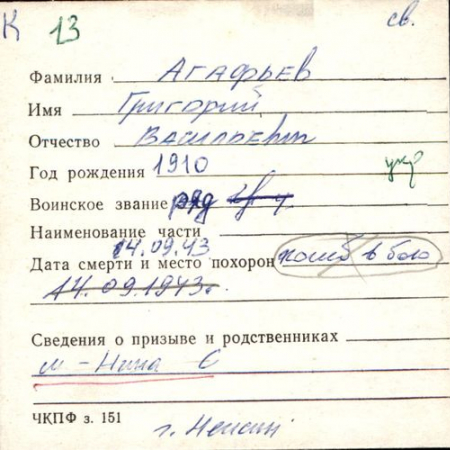 К 13 св.
Фамилия Агафьев
Имя Григорий
Отчество Васильевич
Год рождения 1910 укр
Воинское звание ряд
Наименование части
14.09.43
Дата смерти и место похорон погиб в бою
14.09.1943г.
Сведения о призыве и родственниках
м - Нина С
ЧКПФ з. 151
г.